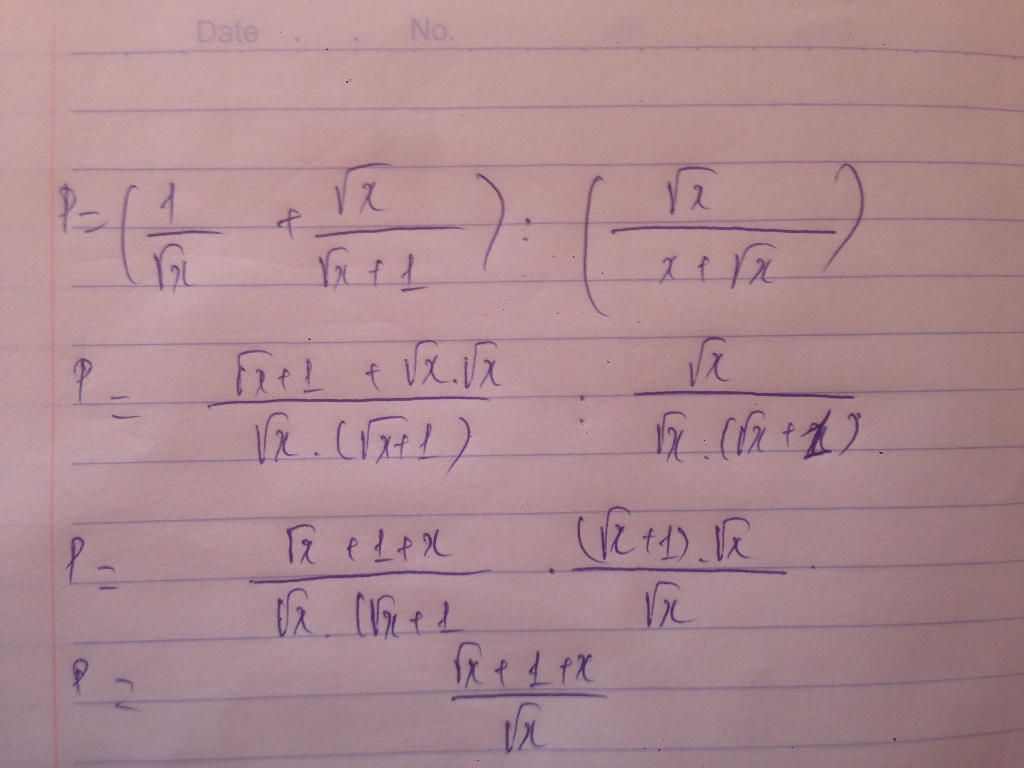 Date . . No.
P = ( 1/√x + √x/(√x + 1) ) : ( √x/(x + √x) )
P = (√x + 1 + √x.√x)/(√x.(√x + 1)) : √x/(√x.(√x + 1))
P = (√x + 1 + x)/(√x.(√x + 1 . ((√x + 1).√x)/√x .
P = (√x + 1 + x)/√x